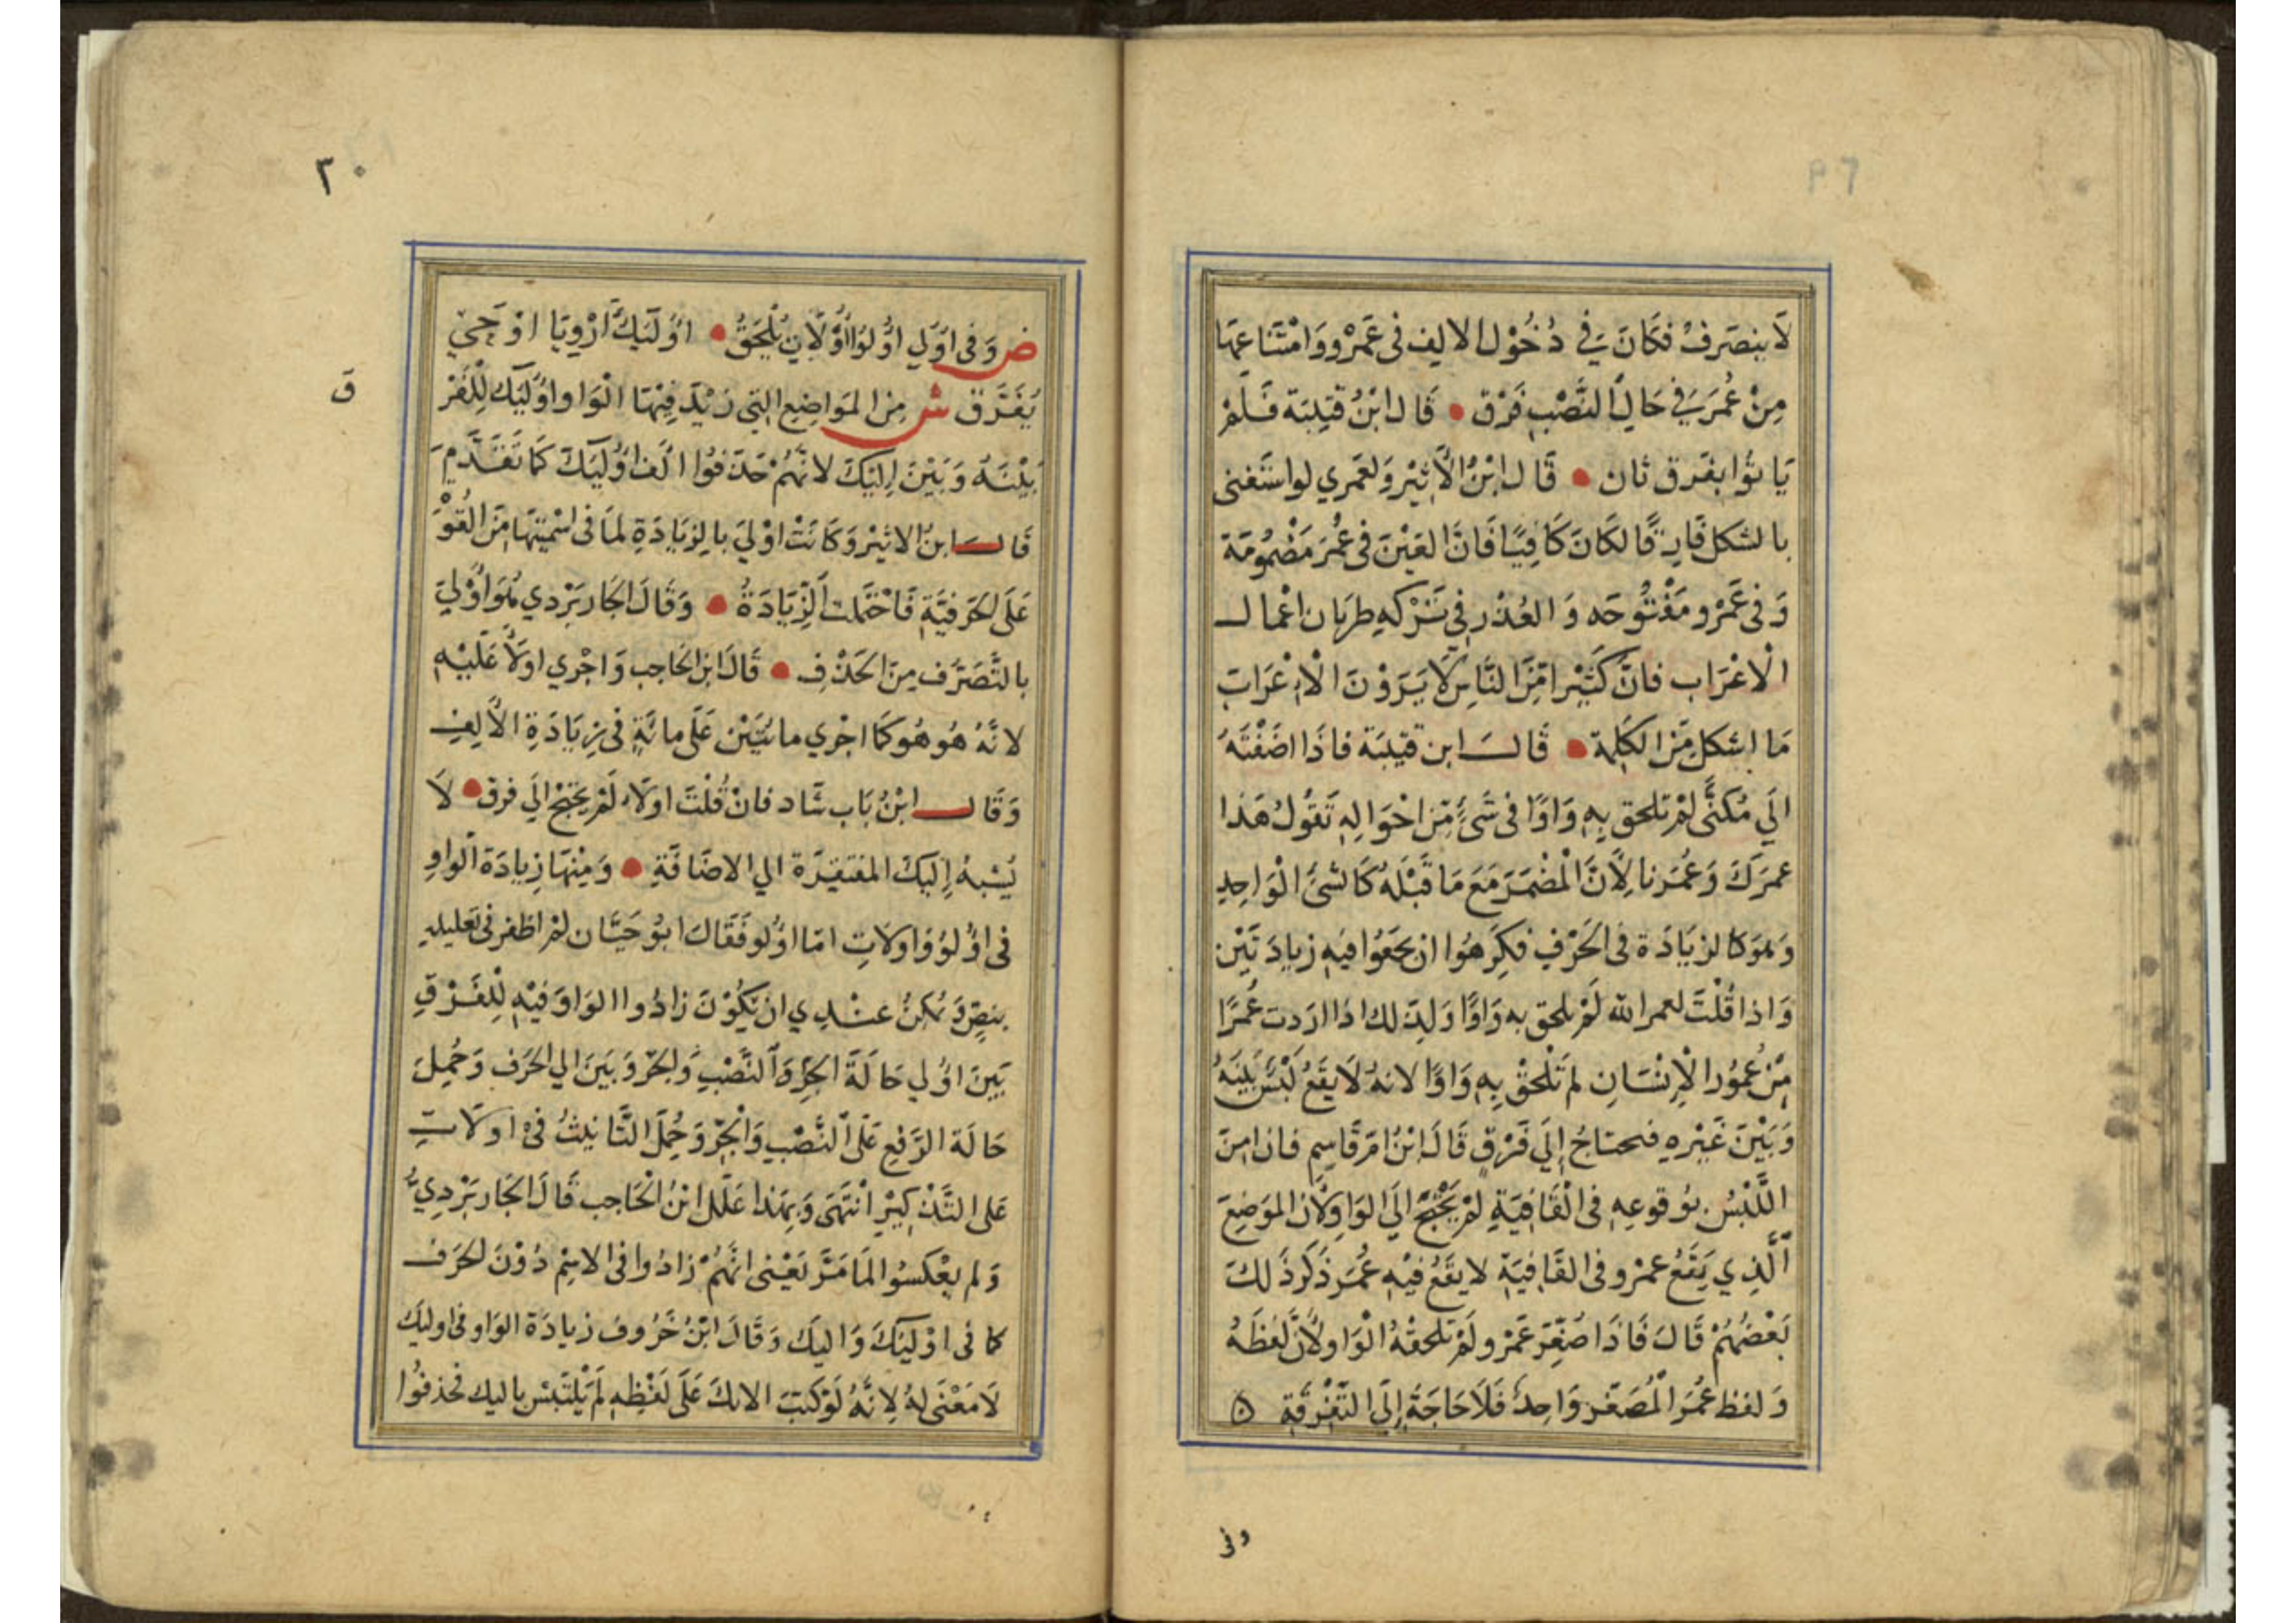 لَا ينصَرفُ فكَانَ يَ في دُخُوْل الالِف فى عَمْرٍو وَامْتنَاعهَا
مِنْ عُمَرَ يَ في حَالِ النَّصْبِ فَرْق • قَال ابْنُ قتيبَة فَلَمْ
يَا توُا بفَرق ثان • قَال ابْنُ الْأَثِيْر وَلعَمري لواستَغنى
بالشكل فَارِقًا لكَانَ كَافِيًا فَانَّ العَيْنَ فى عُمَرَ مَضْمُومَة
وَفى عَمْرٍو مَفْتُوحَه وَالعُذْر فِي تَرْكهِ طرَيان اعْمال
الْاعْرَاب فانَّ كَثِيْرا مِّنَ النَّاسِ لَا يَرَوْنَ الْاِعْرَابَ
مَا اشكل مِّنَ الكَلِمة • قَالَ ابن قتيبَة فاذَا اضَفْتَهُ
الَي مُكنًّى لمْ تلحق بِهِ وَاوًا فى شَئٍ مِّن احْوَالِهِ تَقُولُ هَذا
عمرَكَ وَعُمَرنا لِأَنَّ الْمُضْمَرَ مَعَ مَا قَبْلَهُ كَالشئِ الْوَاحِدِ
وَهُوَ كالزيَادَة فى الحَرْفِ فكَرِهُوا ان يجمَعُوا فيْهِ زيادَتَيْن
وَاذا قُلْتَ لعمر الله لَمْ تلحق به وَاوًا وَلِذَ لك اذَا ارَدت عُمرًا
مِّنْ عُمُور الْاِنْسَان لم تَلْحقْ بِهِ وَاوًا لانهُ لَا يقَعُ لَبْسٌ بَيْنَهُ
وَبَيْنَ غَيْرهِ فيحتاجُ إلَي فَرْقٍ قَالَ ابْنُ امّ قَاسِمِ فان امِنَ
اللَّبْسُ بوُقوعِهِ فى الْقَافِيَةِ لمْ يَحْتَجْ الَي الوَاوِ لِأَن الموَضِعَ
الَّذِي يَقَعُ عمْرو فى القَافِيَةِ لا يقَعُ فيْهِ عُمَر ذكَرَ ذَلكَ
بَعْضُهُمْ قَالَ فَاذَا صُغِّرَ عَمْرو لَمْ تلحقْهُ الْوَاو لأَنَّ لفظَهُ
وَلفظ عُمَرَ الْمُصَغَّر وَاحِدٌ فَلَا حَاجَةَ إلَى التَّفْرِقَةِ
وفى
٢٠
ض وَفى اُولي اوُلوُا اوُلَاتِ يُلْحَقُ • اوُلَئِكَ ارْوِيَا اوْ حَجِي
ق
يُفَرَّق ش مِن المَوَاضِعِ التي زيْدَ فِيْهَا الْوَاو اوُلئِك لِلْفَرْ
بَيْنَهُ وَبَيْنَ اِليْكَ لانَّهُمْ حَذَفوُا الف اوُلئِكَ كَمَا تَقَدَّمَ
قَالَ ابنُ الاثيْر وَكَانَتْ اوْليَ بالِزيَادَةِ لمَا فى اسْميتهَا مِّنَ القُوَّ
عَلَى الحَرفيَّةِ فَاحْتَمَلت الزِّيَادَةُ • وَقَالَ الجَاربَرْدي هُوَ اوْليَ
بالتَّصَرُّف مِنَ الحَذْفِ • قَالَ ابن الحَاجب وَاجْري اولَا عَلَيْهِ
لانَّهُ هُو هُو كَمَا اجْري مائتَيْن عَلَي مائَةٍ فى زِيَادَةِ الْاَلِفِ
وَقَالَ ابْنُ بَاب شَاد فانْ قُلْتَ اولَاء لَمْ يحتَجْ الَي فرق • لَا
يُشْبهُ اِليْكَ المفتقِرَة الي الاضَافَةِ • وَمِنْهَا زِيادَة الوَاوِ
فى اوُلوُ وَاولَاتِ امّا اوُلو فَقَالَ ابوُ حَيَّان لمْ اظفر فى تَعليله
بنصٍّ وَيُمكِنُ عنْدِي انْ يَّكُوْنَ زَادُوا الوَاوَ فيْهِ لِلْفَرْقِ
بَيْنَ اوُلي حَالَة الجَرِّ وَالنَّصْبِ وَالجَرّ وَبَينَ الي الحَرف وَحُمِلَ
حَالَة الرَّفعِ عَلَى النَّصْبِ وَالْجَرّ وَحُمِلَ التَّانِيثُ فى اولَاتِ
عَلى التَّذْكِيْرِ انْتَهَى وَبِهَذا عَلَّلَ ابْنُ الْحَاجب قَالَ الجَاربَرْدِيُّ
وَلم يعْكسوُا لمَا مَرَّ يَعْنى انَّهُمْ زادُوا فى الاسْمِ دُوْنَ الحَرف
كما فى اوْلئِكَ وَاليكَ وَقَالَ ابْنُ خَرُوفُ زيادَة الوَاو فى اوليكَ
لَا مَعْنَى لهُ لِانَّهُ لَوْ كتبَ الاكَ عَلَى لَفْظِهِ لَمْ يَلْتَبسْ باليك فحذفوُا